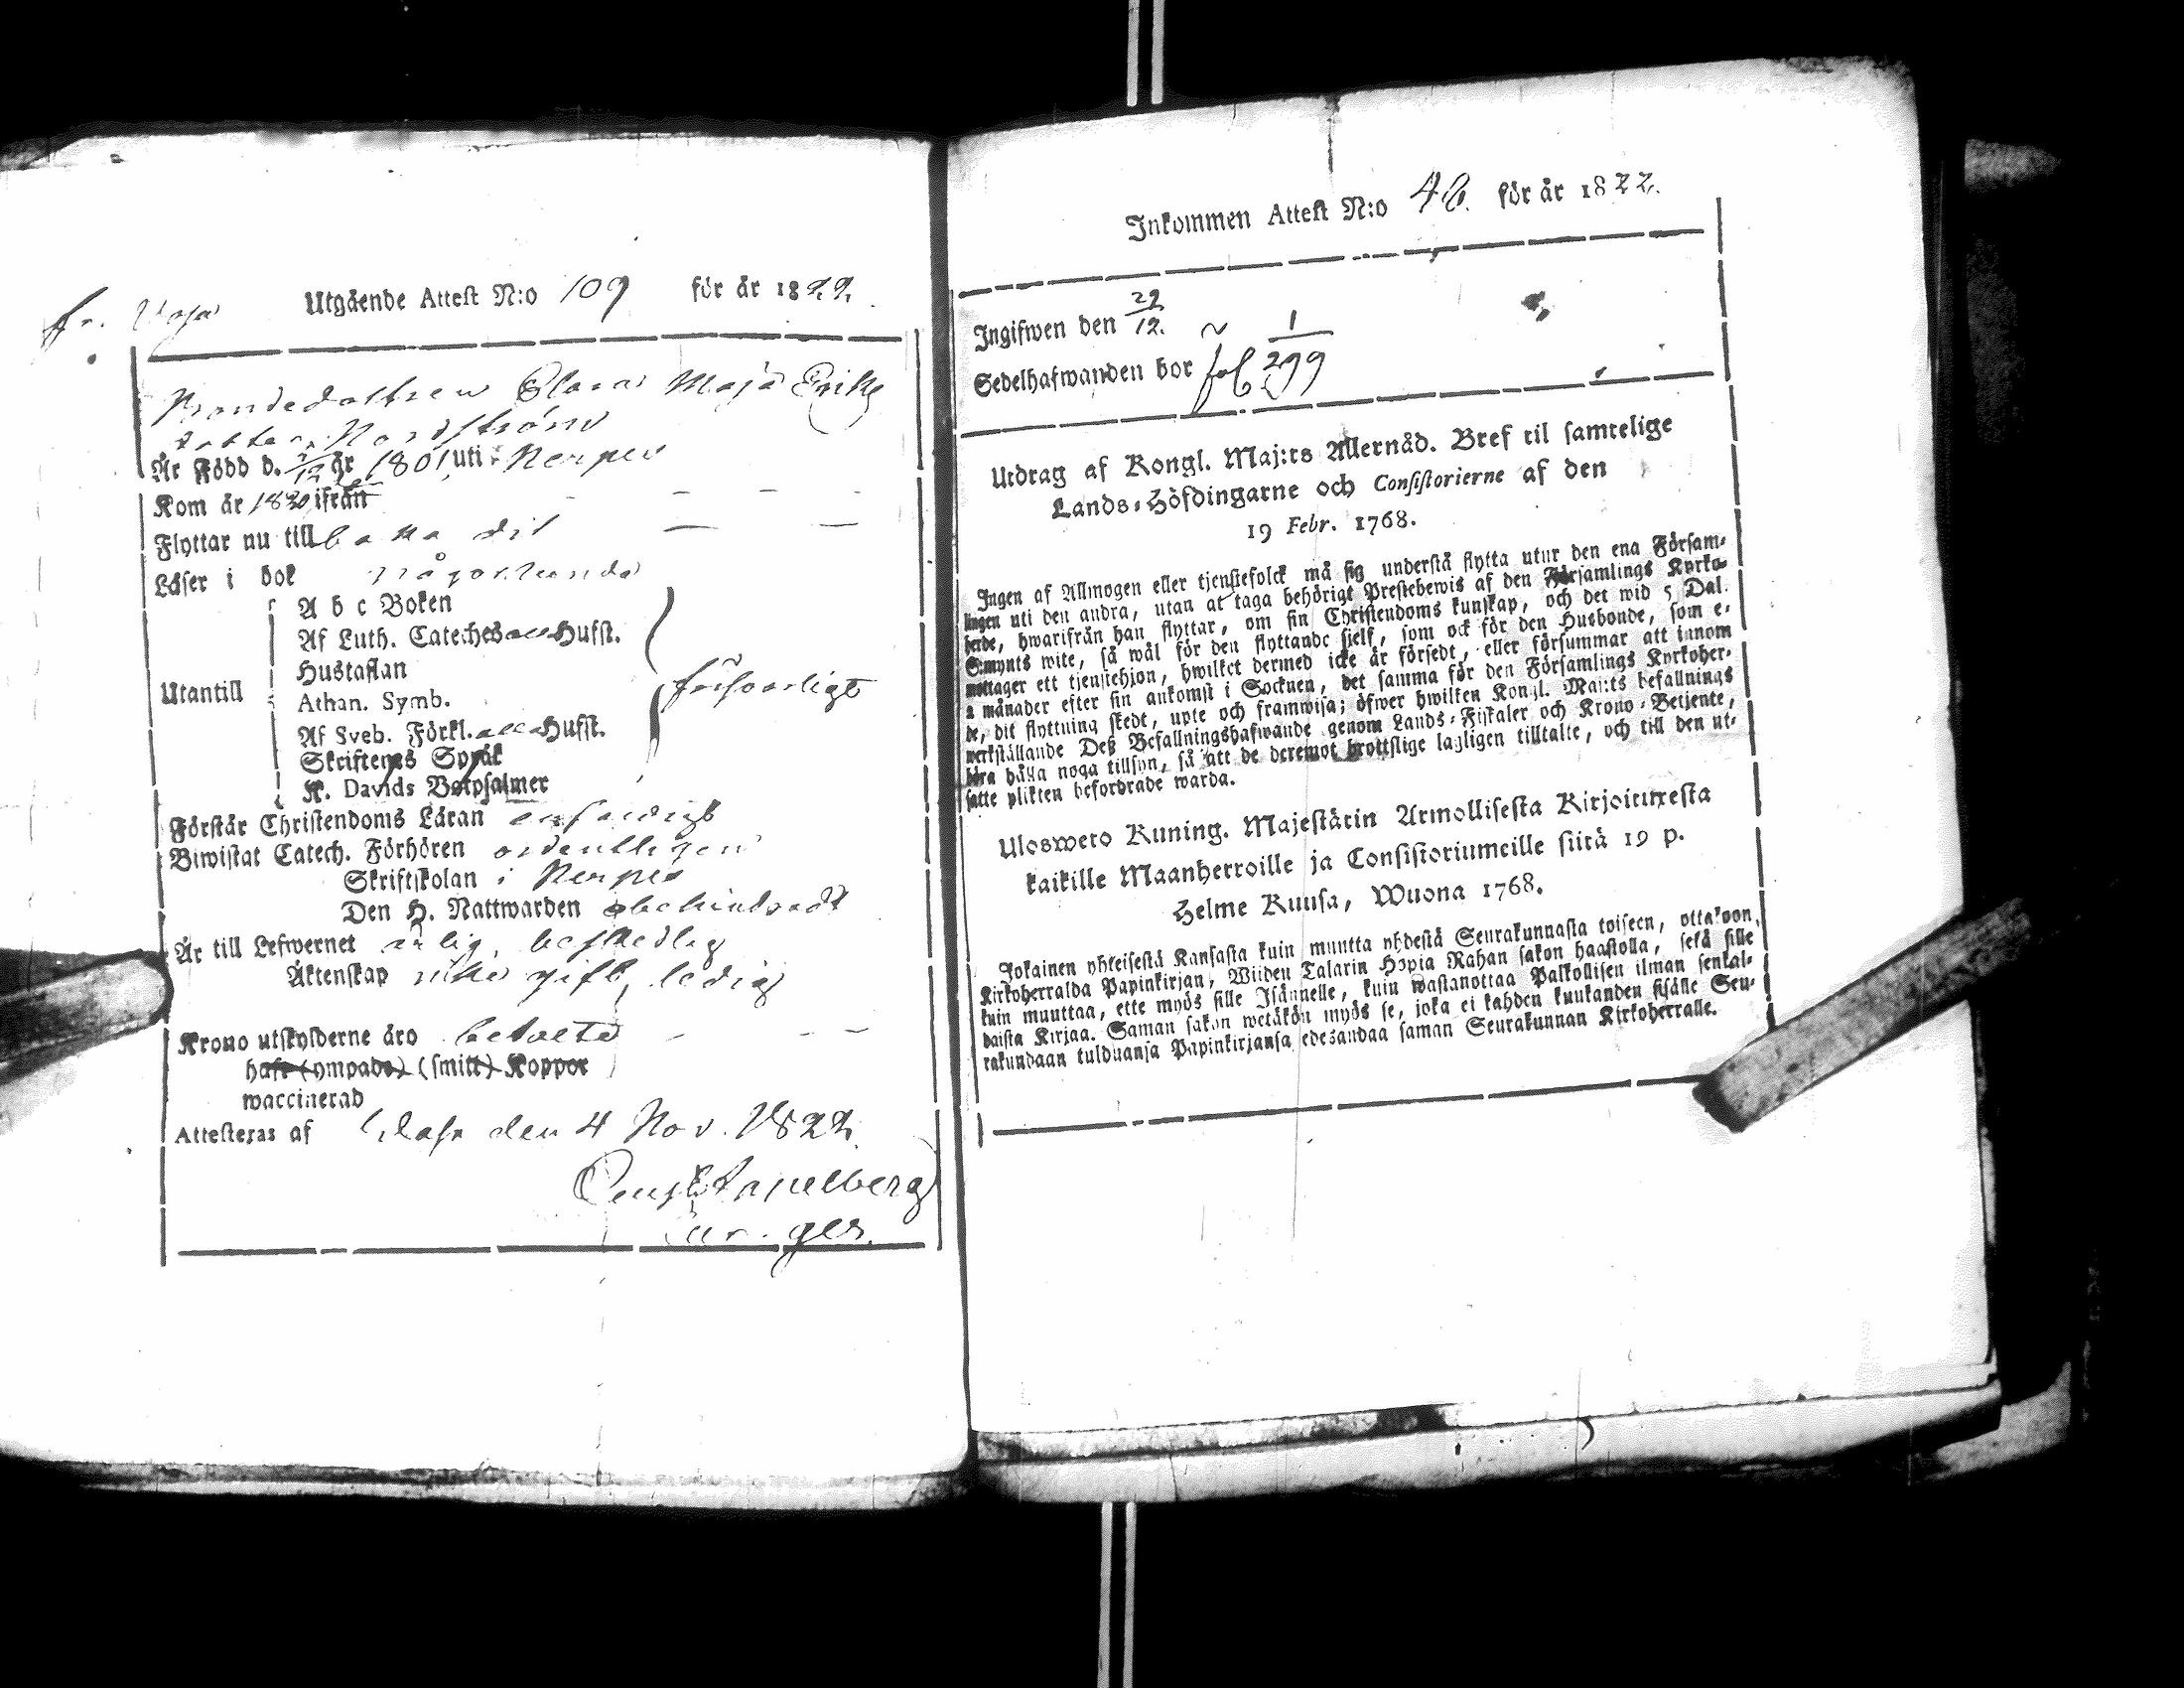 fr. Vasa
Utgående Attest N:o 109 för år 1822.
Bondedottren Clara Maja Eriks
dotter Nordström
Är Född d. år 1801 uti Nerpes
Kom år 1820 ifrån
Flyttar nu till baka dit
Läser i bok någorlunda
A b c Boken
Af Luth. Cateches alla Hufst.
Hustaflan
Utantill
Athan. Symb.
försvarligt
Af Sveb. Förkl. alla Hufst.
Skriftenes Språk
K. Davids Botpsalmer
Förstår Christendoms Läran enfaldigt
Biwistat Catech. Förhören ordentligen
Skriftskolan i Nerpes
Den H. Nattwarden obehindradt
Är till Lefwernet ärlig, beskedlig
Äktenskap icke gift, ledig
Krono utskylderne äro betalte
haft (ympade) (smitt) Koppor
waccinerad
Attesteras af Wasa den 4 Nov. 1822.
Inkommen Attest N:o 48. för år 1822.
Ingifwen den 29/12.
Sedelhafwanden bor fol 1/299
Utdrag af Kongl. Maj:ts Allernåd. Bref til samtelige
Lands-Höfdingarne och Consistorierne af den
19 Febr. 1768.
Ingen af Allmogen eller tjenstefolck må sig understå flytta utur den ena Försam-
lingen uti den andra, utan at taga behörigt Prestebewis af den Församlings Kyrko-
herde, hwarifrån han flyttar, om sin Christendoms kunskap, och det wid 5 Dal.
S:mynts wite, så wäl för den flyttande sjelf, som ock för den Husbonde, som e-
mottager ett tjenstehjon, hwilket dermed icke är försedt, eller försummar att innom
2 månader efter sin ankomst i Socknen, det samma för den Församlings Kyrkoher-
de, dit flyttning skedt, upte och framwisa; öfwer hwilken Kongl. Maj:ts befallnings
werkställande Deß Befallningshafwande genom Lands-Fiskaler och Krono-Betjente,
böra hålla noga tillsyn, så att de deremot brottslige lagligen tilltalte, och till den ut-
satte plikten befordrade warda.
Uloswero Kuning. Majestätin Armollisesta Kirjoituxesta
kaikille Maanherroille ja Consistoriumeille siitä 19 p.
Helme Kuusa, Wuona 1768.
Jokainen yhteisestä Kansasta kuin muutta yhdestä Seurakunnasta toiseen, ottakoon
Kirkoherralda Papinkirjan, Wiiden Talarin Hopia Rahan sakon haastolla, sekä sille
kuin muuttaa, ette myös sille Isännelle, kuin wastanottaa Palkollisen ilman senkal-
daista Kirjaa. Saman sakon wetäkön myös se, joka ei kahden kuukanden sisälle Seu-
rakundaan tulduansa Papinkirjansa edesandaa saman Seurakunnan Kirkoherralle.